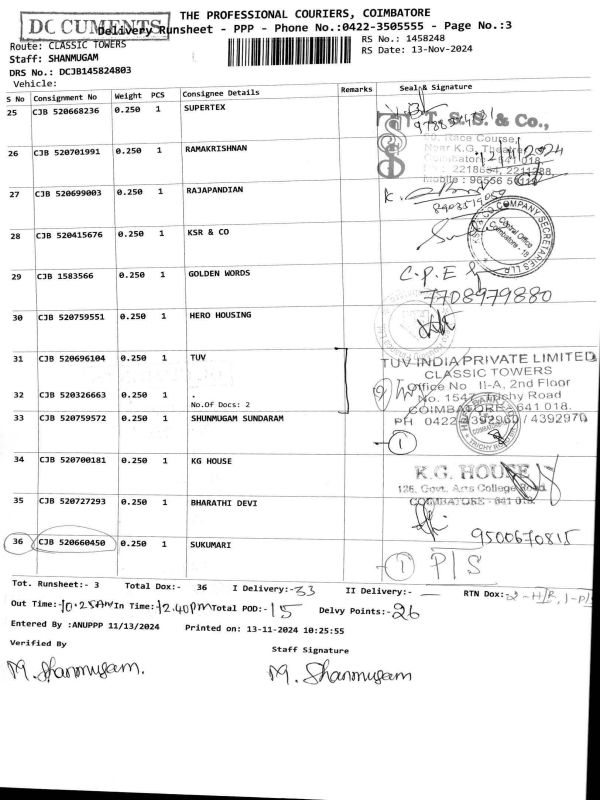 THE PROFESSIONAL COURIERS, COIMBATORE
DOCUMENTS
Delivery Runsheet - PPP - Phone No.:0422-3505555 - Page No.:3
Route: CLASSIC TOWERS
RS No.: 1458248
Staff: SHANMUGAM
RS Date: 13-Nov-2024
DRS No.: DCJB145824803
Vehicle:
S No Consignment No Weight PCS Consignee Details Remarks Seal & Signature
25 CJB 520668236 0.250 1 SUPERTEX
T. S. S. & Co.,
80, Race Course,
Near K.G. Theatre
Coimbatore - 641 018.
26 CJB 520701991 0.250 1 RAMAKRISHNAN
27 CJB 520699003 0.250 1 RAJAPANDIAN
K.
8903519059
28 CJB 520415676 0.250 1 KSR & CO
KSR & CO COMPANY SECRETARIES LLP
Central Office
Coimbatore - 18
29 CJB 1583566 0.250 1 GOLDEN WORDS
C.P.E
7708979880
30 CJB 520759551 0.250 1 HERO HOUSING
31 CJB 520696104 0.250 1 TUV
TUV INDIA PRIVATE LIMITED
CLASSIC TOWERS
Office No II-A, 2nd Floor
No. 1547, Trichy Road
COIMBATORE - 641 018.
PH 0422-4392960 / 4392970
32 CJB 520326663 0.250 1 .
No.Of Docs: 2
33 CJB 520759572 0.250 1 SHUNMUGAM SUNDARAM
1
34 CJB 520700181 0.250 1 KG HOUSE
K.G. HOUSE
126, Govt. Arts College Road
COIMBATORE - 641 018.
35 CJB 520727293 0.250 1 BHARATHI DEVI
9500670815
36 CJB 520660450 0.250 1 SUKUMARI
1 P/S
Tot. Runsheet:- 3 Total Dox:- 36 I Delivery:- 33 II Delivery:- — RTN Dox:- 2-H/R, 1-P/S
Out Time:- 10.25Am In Time:- 12.40Pm Total POD:- 15 Delvy Points:- 26
Entered By :ANUPPP 11/13/2024 Printed on: 13-11-2024 10:25:55
Verified By
Staff Signature
M. Shanmugam.
M. Shanmugam